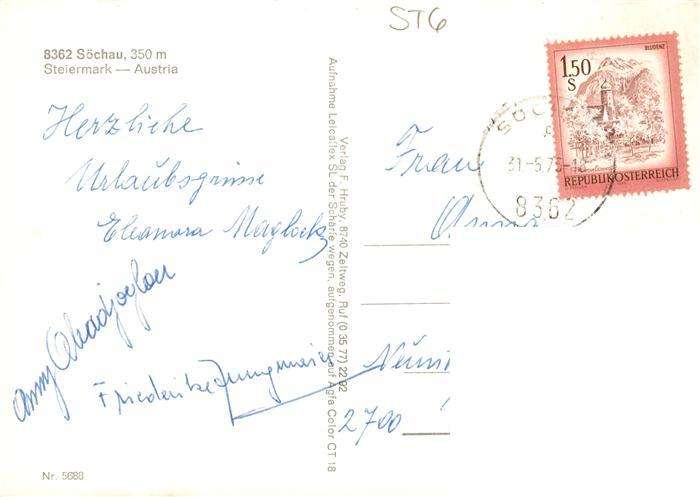 ST6
8362 Söchau, 350 m
Steiermark — Austria
Herzliche
Urlaubsgrüsse
Eleonora
Anny
Friederike Jungmeier
Nr. 5688
Verlag F. Hruby, 8740 Zeltweg, Ruf (0 35 77) 22 92
Aufnahme Leicaflex SL der Schärfe wegen, aufgenommen auf Agfa Color CT 18
BLUDENZ
1.50
S
REPUBLIK ÖSTERREICH
8362
Frau
2700